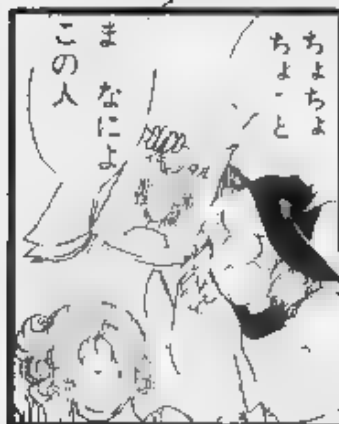 ちょちょ
ちょっと
ま なによ
この人